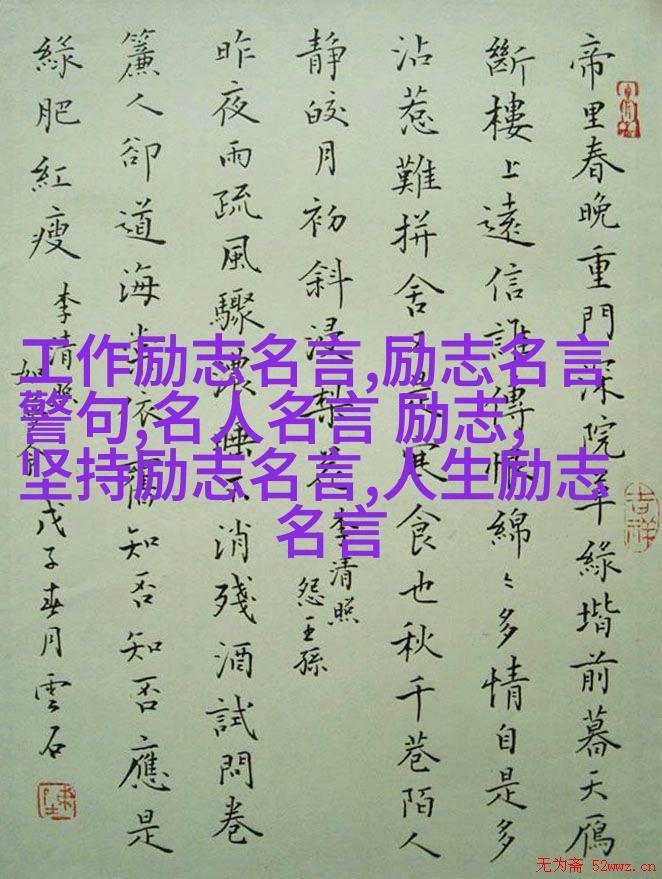 帝里春晚重門深院草綠堦前暮天鴈
斷樓上遠信誰傳恨綿〻多情自是多
沾惹難拼舍又是寒食也秋千巷陌人
靜皎月初斜浸梨花 李清照
怨王孫
昨夜雨疏風驟濃睡不消殘酒試問卷
簾人卻道海棠依舊知否知否應是
綠肥紅瘦 李清照
如夢令 戊子春月雲石
工作励志名言,励志名言
警句,名人名言 励志,
坚持励志名言,人生励志
名言
吉祥
无为斋 52wwz.cn